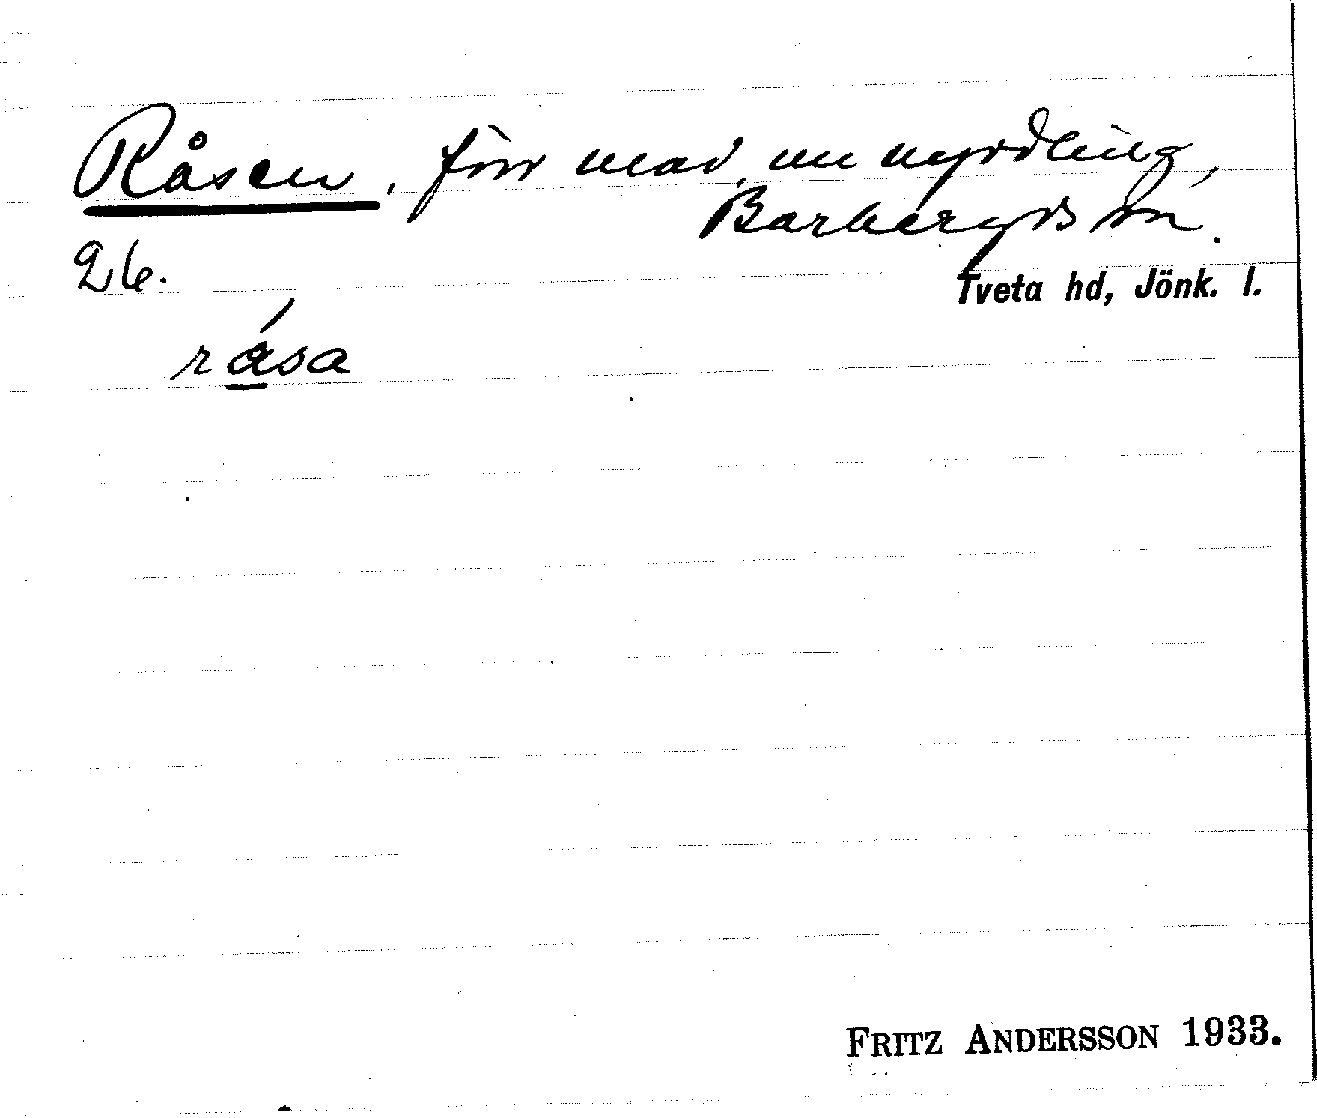 Råsen, förr mad, nu nyodling,
Barkeryds sn.
Tveta hd, Jönk. l.
26.
råsa
FRITZ ANDERSSON 1933.